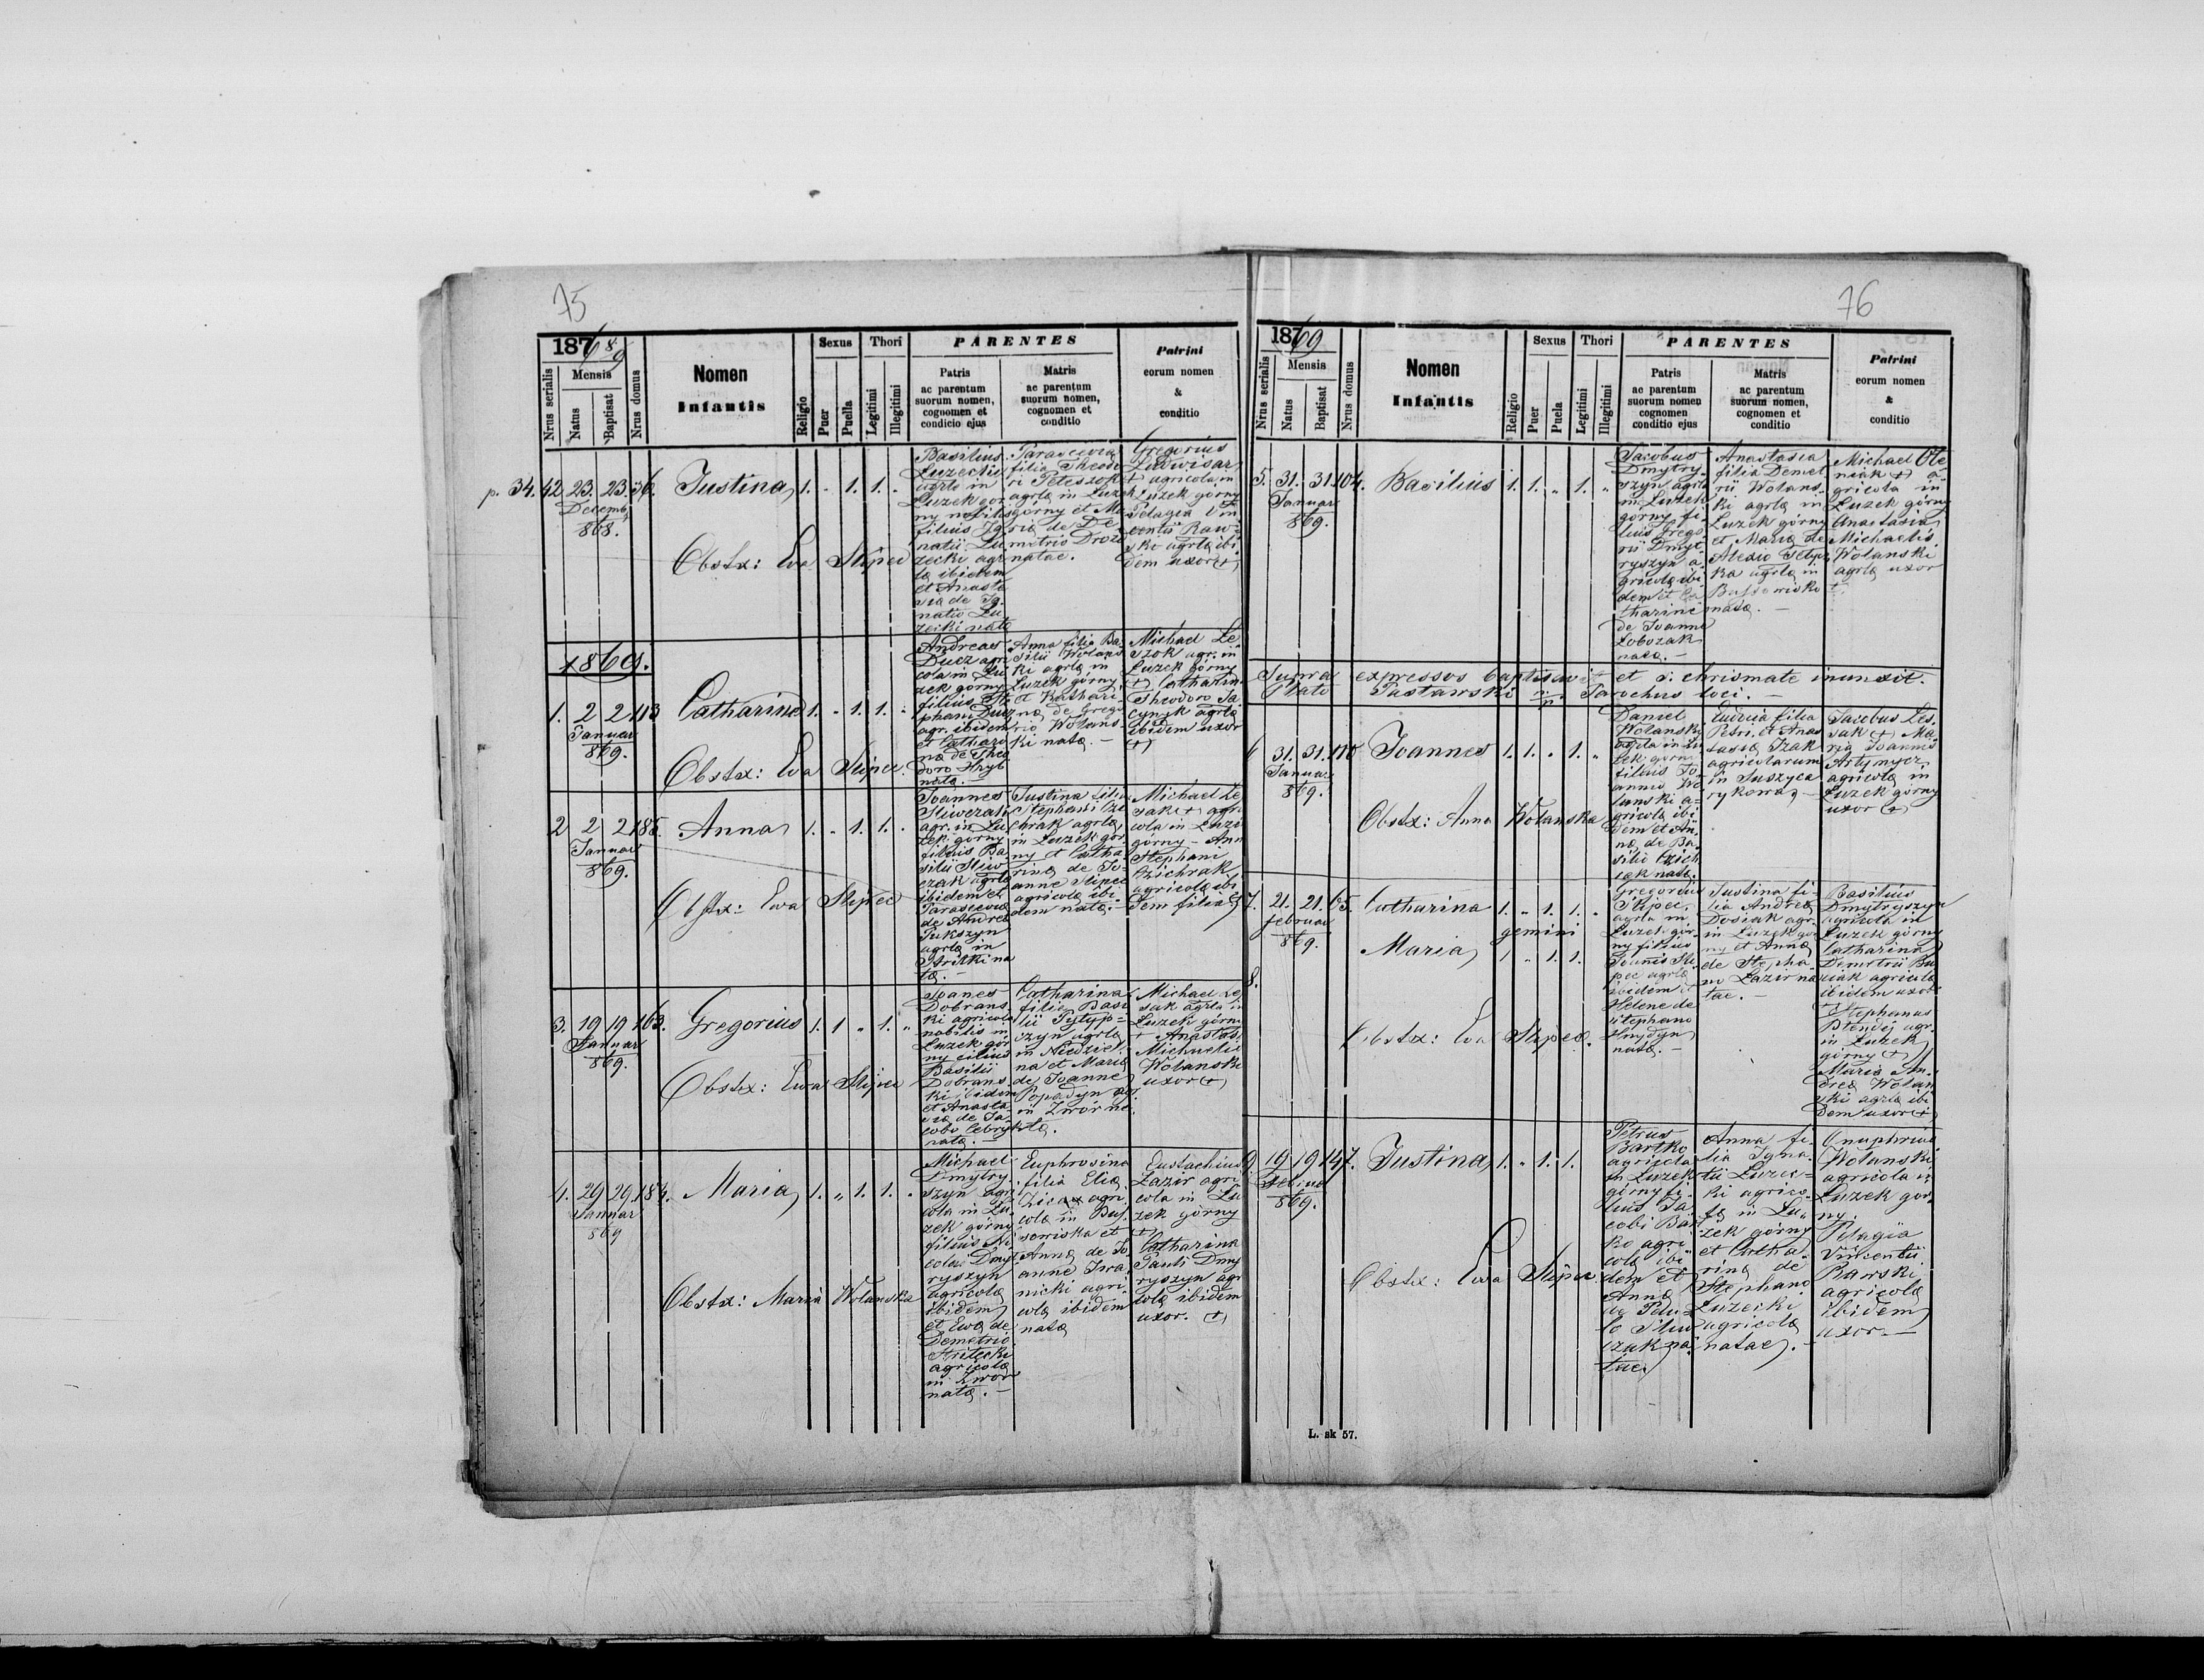 75
187 68/9
Nrus serialis
Mensis
Natus
Baptisat
Nrus domus
Nomen
Infantis
Religio
Sexus
Puer
Puella
Thori
Legitimi
Illegitimi
PARENTES
Patris
ac parentum
suorum nomen,
cognomen et
condicio ejus
Matris
ac parentum
suorum nomen,
cognomen et
conditio
Patrini
eorum nomen
&
conditio
p. 34. 42 23. 23. 36. Justina 1. „ 1. 1. „
Decemb
868.
Obstx: Eva Slipec
Basilius
Luzecki
agrla in
Luzek gor
ny nobilis
filius Ig
natii Lu
zecki agr
la ibidem
et Anasta
sia de Ig
natio Lu
zecki nata
Parascevia
filia Theodo
ri
agrla in Luzek
gorny et Ma
ria de De
metrio
natae.
Gregorius
Ludwisar
+ agricola in
Luzek górny
Pelagia Vin
centii Raw
ski agrla ibi
dem uxor +
1869.
1. 2 2. 113 Catharina 1. „ 1. 1. „
Januar
869.
Obstx: Eva Slipec.
Andreas
Ducz agri
cola in Lu
zek gorny
filius Ste
phani Ducz
agr. ibidem
et Cathari
na de Theo
doro Hryb
nata.
Anna filia Ba
silii Wolans
ki agrla in
Luzek górny
et Kathari
na de Grego
rio Wolans
ki nata. —
Michael Le
szak agr. in
Luzek górny
+ Catharina
Theodoro Ja
agrla
ibidem uxor
+
2 2 2. 188. Anna 1. „ 1. 1. „
Januar
869.
Obstx: Eva Slipec
Joannes
Sliwczak
agr. in Lu
zek górny
filius Ba
silii Sliw
czak agrla
ibidem et
Parascevia
de Andrea
agrla in
na
ta. —
Justina filia
Stephani Czi
chrak agrla
in Luzek gór
ny et Catha
rina de Jo
anne Slipec
agricola ibi
dem nata. —
Michael Le
szak + agri
cola in Luze
górny — Ann
Stephani
Czichrak
agricola ibi
dem filia
3. 19 19 163. Gregorius 1. 1 „ 1. „
Januar
869.
Obstx: Ewa Slipec
Joanes
Dobrans
ki agricola
nobilis in
Luzek gór
ny filius
Basilii
Dobrans
ki ibidem
et Anasta
sia de Ja
cobo
nata. —
Catharina
filia Basi
lii Pytyp=
czyn agrla
in Niedziel
na et Maria
de Joanne
Popadyn ag.
in Zwór na
ta.
Michael Le
szak agrla in
Luzek górny
+ Anastas.
Michaelis
Wolanski
uxor +
4. 29 29. 184. Maria 1. „ 1. 1. „
Januar
869
Obstx: Maria Wolanska
Michael
Dmytry
szyn agri
cola in Lu
zek górny
filius Ni
colai Dmyt
ryszyn
agricola
ibidem
et Ewa de
Demetrio
Strilecki
agricola
in Zwor
nata. —
Euphrosina
filia Elia
agri
cola in Bus
sowiska et
Anna de Jo
anne Iwa
nicki agri
cola ibidem
nata
Eustachius
Lazir agri
cola in Lu
zek górny
+
Catharina
Pauli Dmy
ryszyn agri
cola ibidem
uxor. +
76
187 69
Nrus serialis
Mensis
Natus
Baptisat
Nrus domus
Nomen
Infantis
Religio
Sexus
Puer
Puela
Thori
Legitimi
Illegitimi
PARENTES
Patris
ac parentum
suorum nomen,
cognomen
conditio ejus
Matris
ac parentum
suorum nomen,
cognomen et
conditio
Patrini
eorum nomen
&
conditio
5. 31. 31. 104. Basilius 1. 1. „ 1. „
Januar
869.
Jacobus
Dmytry
szyn agrla
in Luzek
górny fi
lius Grego
rii Dmyt
ryszyn a
gricola ibi
dem et Ca
tharina
de Joanne
Lobozak
nata. —
Anastasia
filia Demet
rii Wolans
ki agrla in
Luzek górny
et Maria de
Alexio
agrla in
Bussowisko
nata. —
Michael Ole
niak + a
gricola in
Luzek górny
Anastasia
Michaelis
Wolanski
agrla uxor
+
Supra expressos baptisavit et s. chrismate inunxit.
Plato Pastawski Parochus loci. —
6 31. 31. 170 Joannes 1. 1. „ 1. „
Januar
869.
Obstx: Anna Wolanska
Daniel
Wolanski
agrla in Lu
zek gorn
filius Jo
annis Wo
lanski a=
gricola ibi
dem et An
na de Ba
silio Czich
rak nata.
Eudocia filia
Petri et Anas
tasia Izak
agricolarum
in Suszyca
rykowa —
Jacobus Les
zak + Ma
ria Joannis
Artymycz
agricola in
Luzek górny
uxor +
7. 21. 21. 65. Catharina 1. „ 1. 1. „
februar
869.
gemini
8. Maria 1 „ 1. 1.
Obstx: Eva Slipec.
Gregorius
Slipec
agrla in
Luzek gór
ny filius
Joanis Sli
pec agrla
ibidem et
Helene de
Stephano
Hnydyn
nata. —
Justina fi
lia Andrea
Dosiak agr
in Luzek gór
ny et Anna
de Stepha
no Lazir na
tae. —
Basilius
Dmytryszyn
agricola in
Luzek górny
Catharina
Demetrii
agricola
ibidem uxor
+
Stephanus
agr.
in Luzek
górny +
Maria An
drea Wolan
ski agrla ibi
dem uxor +
9. 19 19 147. Justina 1. „ 1. 1.
Februar
869.
Obstx: Ewa Slipec
Petrus
Bartko
agricola
in Luzek
górny fi
lius Ja
cobi Bart
ko agri
cola ibi
dem et
Anna
de
Sliw
czak na
tae.
Anna fi
lia Igna
tii Luzec=
ki agrico
la in Lu
zek górny
et Catha
rina de
Stephano
Luzecki
agricola
natae. —
Onuphrius
Wolanski
agricola in
Luzek gor
ny.
Pelagia
Vincentii
Rawski
agricola
ibidem
uxor. —
L. sk 57.